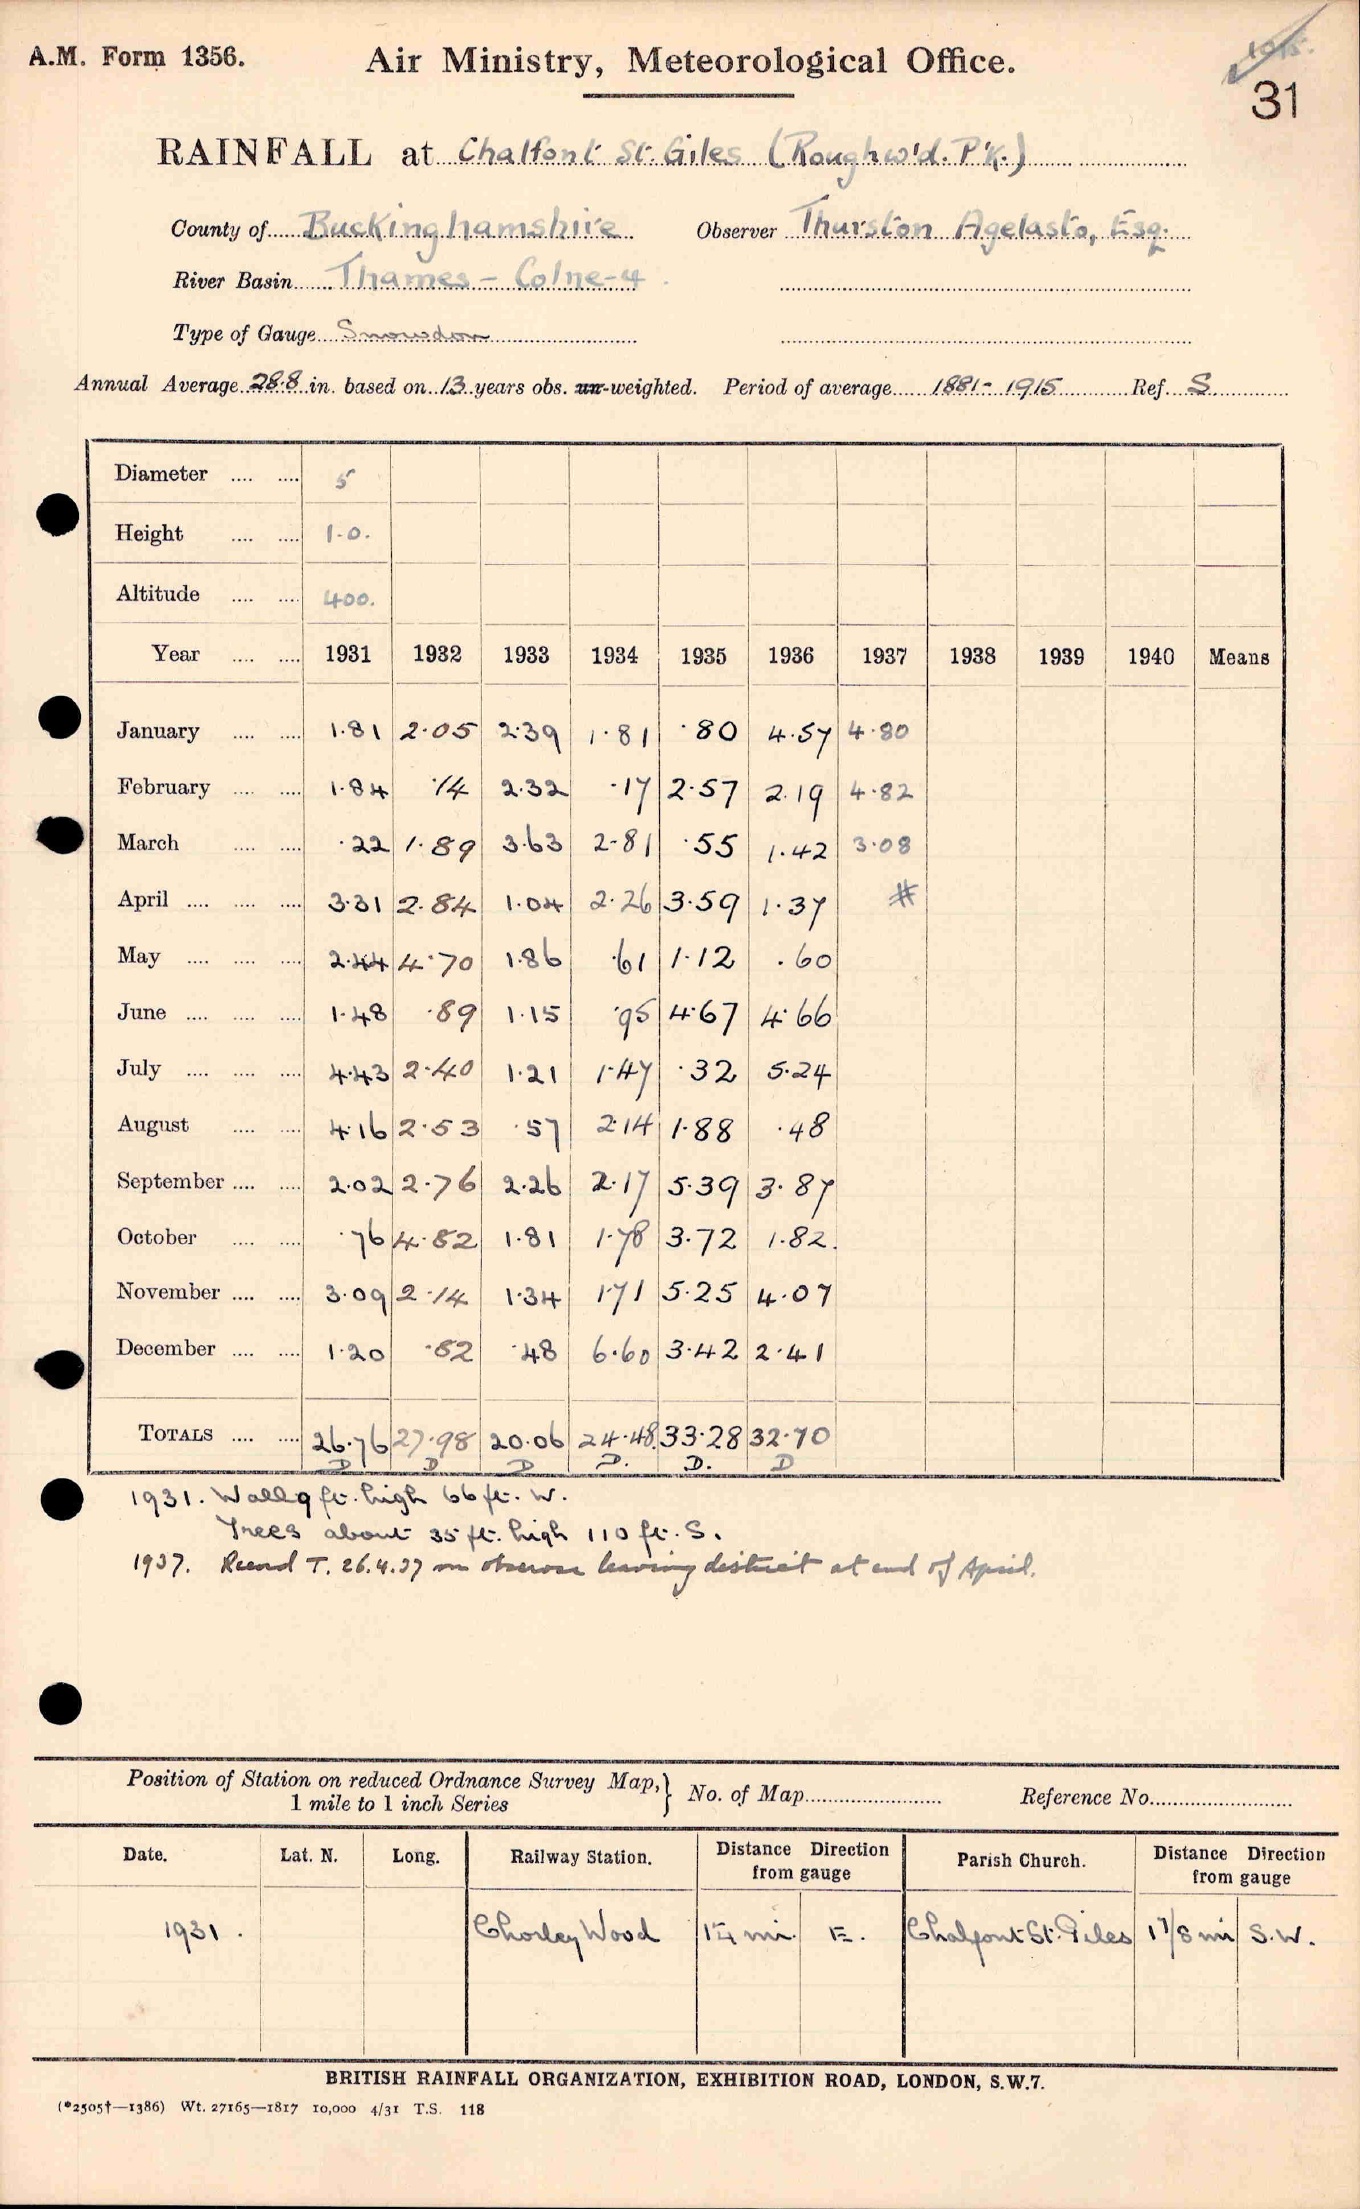 1915.
A.M. Form 1356. Air Ministry, Meteorological Office.
31
RAINFALL at Chalfont St. Giles (Roughw'd. P'k.)
County of Buckinghamshire Observer Thurston Agelasto, Esq.
River Basin Thames - Colne - 4
Type of Gauge Snowdon
Annual Average 28.8 in. based on 13 years obs. un-weighted. Period of average 1881 - 1915 Ref. S
Diameter 5
Height 1.0.
Altitude 400.
Year 1931 1932 1933 1934 1935 1936 1937 1938 1939 1940 Means
January 1.81 2.05 2.39 1.81 .80 4.57 4.80
February 1.84 .14 2.32 .17 2.57 2.19 4.82
March .22 1.89 3.63 2.81 .55 1.42 3.08
April 3.31 2.84 1.04 2.26 3.59 1.37 #
May 2.44 4.70 1.86 .61 1.12 .60
June 1.48 .89 1.15 .95 4.67 4.66
July 4.43 2.40 1.21 1.47 .32 5.24
August 4.16 2.53 .57 2.14 1.88 .48
September 2.02 2.76 2.26 2.17 5.39 3.87
October .76 4.82 1.81 1.78 3.72 1.82.
November 3.09 2.14 1.34 1.71 5.25 4.07
December 1.20 .82 .48 6.60 3.42 2.41
TOTALS 26.76 27.98 20.06 24.48 33.28 32.70
D D D D. D. D
1931. Wall 9 ft. high 66 ft. W.
Trees about 35 ft. high 110 ft. S.
1937. Record T. 26.4.37 on observer leaving district at end of April.
Position of Station on reduced Ordnance Survey Map, } No. of Map Reference No.
1 mile to 1 inch Series
Date. Lat. N. Long. Railway Station. Distance Direction from gauge Parish Church. Distance Direction from gauge
1931. Chorley Wood 1¼ mi. E. Chalfont St. Giles 1 7/8 mi S.W.
BRITISH RAINFALL ORGANIZATION, EXHIBITION ROAD, LONDON, S.W.7.
(*2505†—1386) Wt. 27165—1817 10,000 4/31 T.S. 118